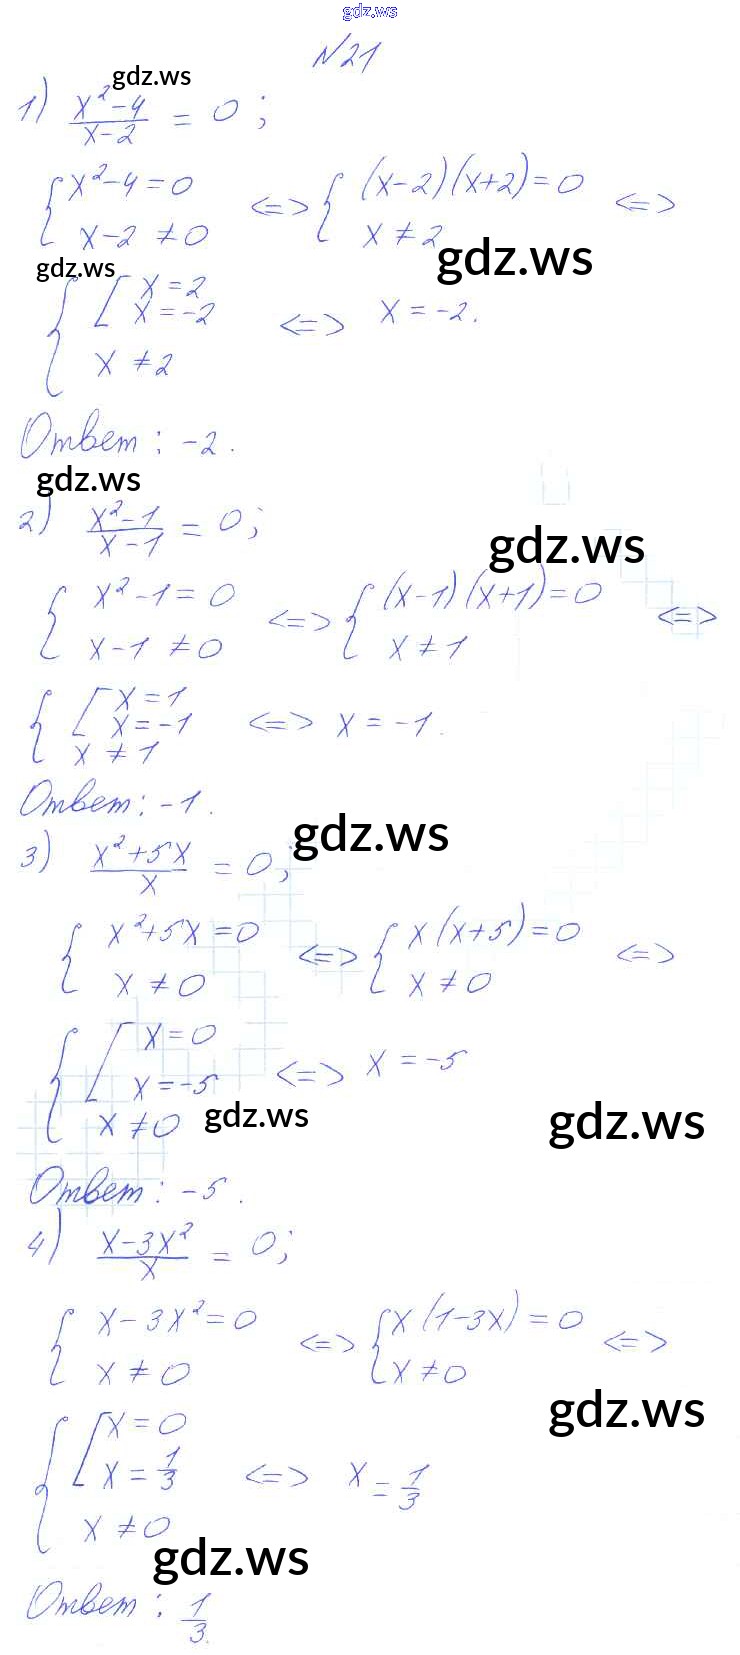 gdz.ws
N21
gdz.ws
1) (x²-4)/(x-2) = 0;
{ x²-4=0 <=> { (x-2)(x+2)=0 <=>
x-2≠0 x≠2
gdz.ws
gdz.ws
{ [ x=2
x=-2 <=> x=-2.
x≠2
Ответ: -2.
gdz.ws
2) (x²-1)/(x-1) = 0;
gdz.ws
{ x²-1=0 <=> { (x-1)(x+1)=0 <=>
x-1≠0 x≠1
{ [ x=1
x=-1 <=> x=-1.
x≠1
Ответ: -1.
gdz.ws
3) (x²+5x)/x = 0;
{ x²+5x=0 <=> { x(x+5)=0 <=>
x≠0 x≠0
{ [ x=0
x=-5 <=> x=-5
x≠0
gdz.ws
gdz.ws
Ответ: -5.
4) (x-3x²)/x = 0;
{ x-3x²=0 <=> { x(1-3x)=0 <=>
x≠0 x≠0
gdz.ws
{ [ x=0
x=1/3 <=> x=1/3
x≠0
gdz.ws
Ответ: 1/3.